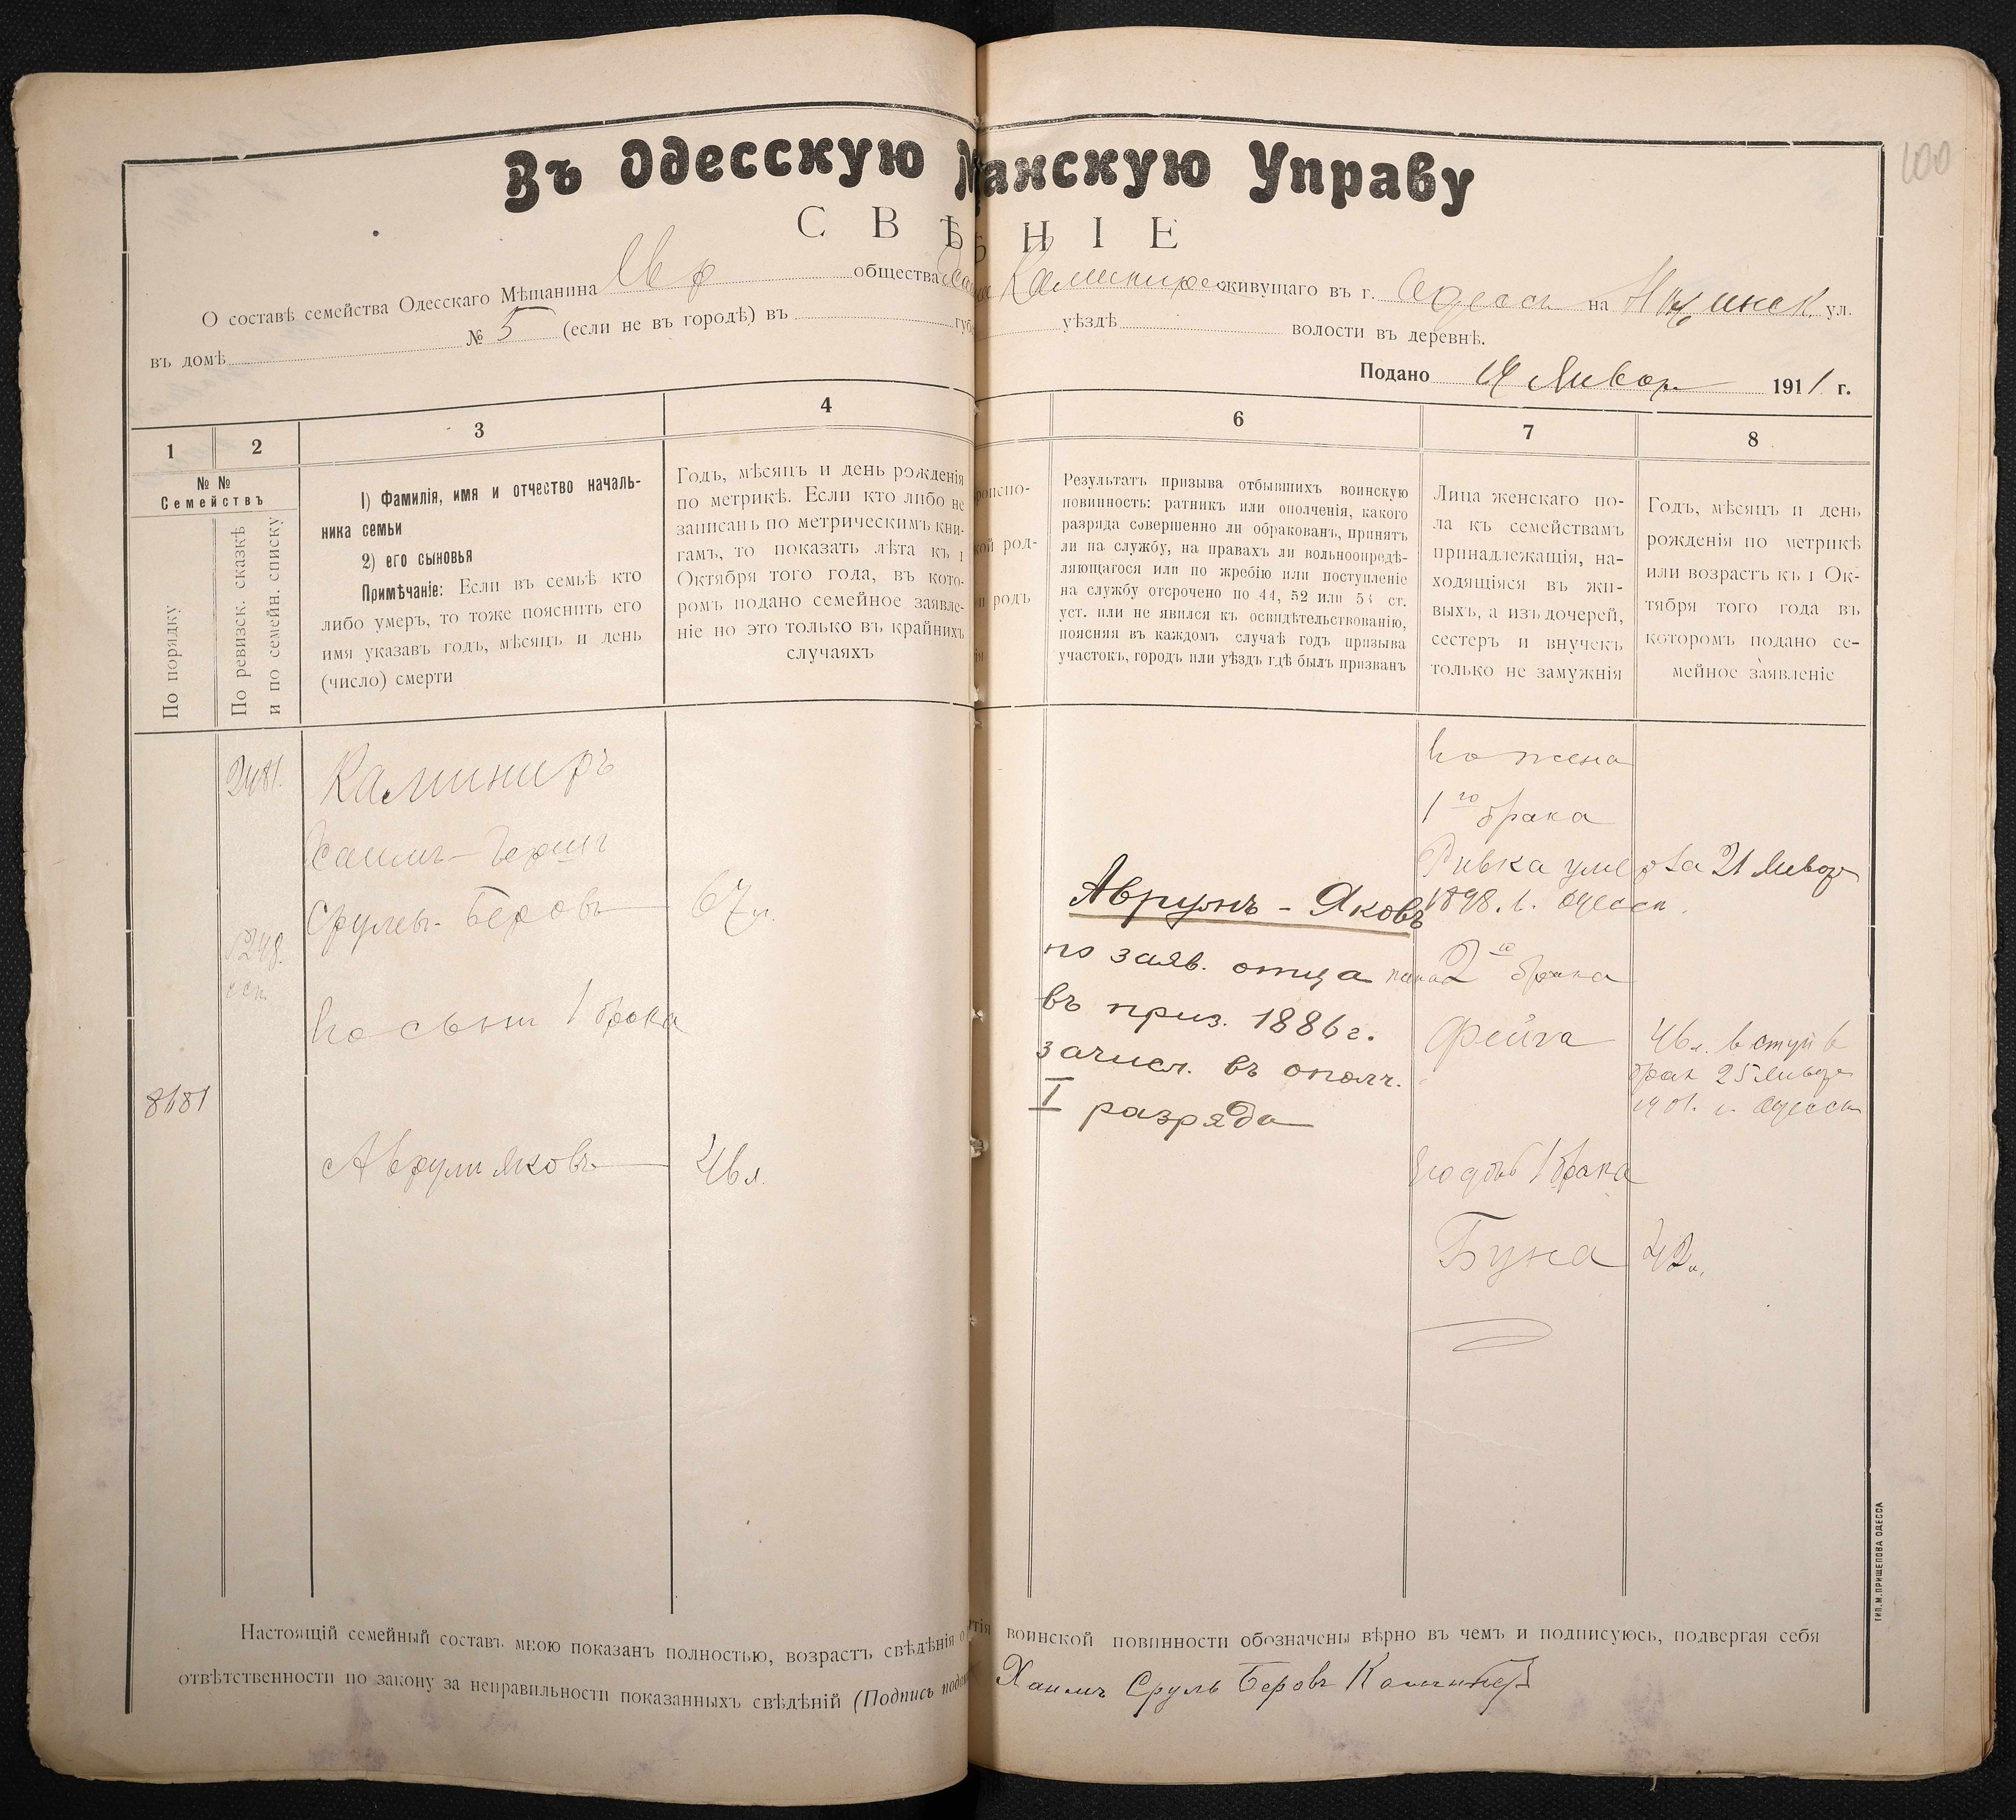 100
Въ Одесскую М анскую Управу
СВѢ НІЕ
О составѣ семейства Одесскаго Мѣщанина Евр общества живущаго въ г. Одессѣ на ул.
въ домѣ № 5 (если не въ городѣ) въ губ уѣздѣ волости въ деревнѣ.
Подано 19 Январ 1911 г.
1 2 3 4 6 7 8
№ №
Семействъ
По порядку
По ревизск. сказкѣ
и по семейн. списку
1) Фамилія, имя и отчество началь-
ника семьи
2) его сыновья
Примѣчаніе: Если въ семьѣ кто
либо умеръ, то тоже пояснить его
имя указавъ годъ, мѣсяцъ и день
(число) смерти
Годъ, мѣсяцъ и день рожденія
по метрикѣ. Если кто либо не
записанъ по метрическимъ кни-
гамъ, то показать лѣта къ 1
Октября того года, въ кото-
ромъ подано семейное заявле-
ніе но это только въ крайнихъ
случаяхъ
роисхо-
кой род-
и родъ
ія
Результатъ призыва отбывшихъ воинскую
повинность: ратникъ или ополченія, какого
разряда совершенно ли обракованъ, принятъ
ли на службу, на правахъ ли вольноопредѣ-
ляющагося или по жребію или поступленіе
на службу отсрочено по 44, 52 или 53 ст.
уст. или не явился къ освидѣтельствованію,
поясняя въ каждомъ случаѣ годъ призыва
участокъ, городъ или уѣздъ гдѣ былъ призванъ
Лица женскаго по-
ла къ семействамъ
принадлежащія, на-
ходящіяся въ жи-
выхъ, а изъ дочерей,
сестеръ и внучекъ
только не замужнія
Годъ, мѣсяцъ и день
рожденія по метрикѣ
или возрастъ къ 1 Ок-
тября того года въ
которомъ подано се-
мейное заявленіе
2481.
Калиниръ
Хаимъ-
Срулы-Беровъ 67 л.
5248.
Его сыни 1 брака
8181
Аврумъ Яковъ 46 л.
Аврумъ-Яковъ
по заяв. отца
въ приз. 1886 г.
зачисл. въ ополч.
I разряда
Его жена
1го брака
Ривка умерла 21 Январ
1898. г. Одесса
2го брака
Фейга 46 л. вступ в
брак 25 Январ
1901. г. Одесса
Его дочь 1 брака
Буна 42 л.
Настоящій семейный составъ мною показанъ полностью, возрастъ свѣдѣнія о тія воинской повинности обозначены вѣрно въ чемъ и подписуюсь, подвергая себя
отвѣтственности по закону за неправильности показанныхъ свѣдѣній (Подпись пода Хаимъ Сруль Беровъ
ТИП. М. ПРИЩЕПОВА ОДЕССА